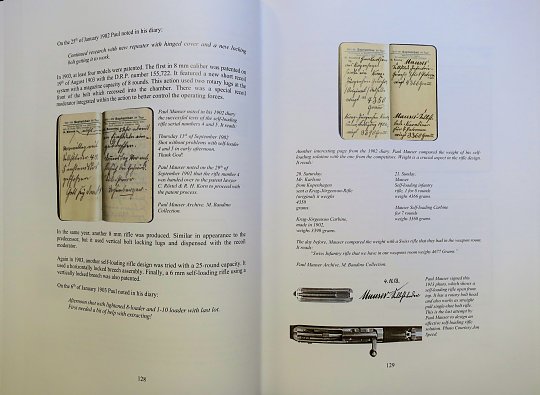 On the 25th of January 1902 Paul noted in his diary:
Continued research with new repeater with hinged cover and a new locking
bolt getting it to work.
In 1903, at least four models were patented. The first in 8 mm caliber was patented on
19th of August 1903 with the D.R.P. number 155,722. It featured a new short recoil
system with a magazine capacity of 8 rounds. This action used two rotary lugs at the
front of the bolt which recessed into the chamber. There was a special recoil
moderator integrated within the action to better control the operating forces.
Paul Mauser noted in his 1902 diary
the successful tests of the self-loading
rifle serial numbers 4 and 3. It reads:
Thursday 11th of September 1902
Shot without problems with self-loader
4 and 3 in early afternoon.
Thank God!
Paul Mauser noted on the 29th of
September 1902 that the rifle number 4
was handed over to the patent lawyer
C. Röstel & R. H. Korn to proceed with
the patent process.
Paul Mauser Archive. M. Baudino
Collection.
In the same year, another 8 mm rifle was produced. Similar in appearance to the
predecessor, but it used vertical bolt locking lugs and dispensed with the recoil
moderator.
Again in 1903, another self-loading rifle design was tried with a 25-round capacity. It
used a horizontally locked breech assembly. Finally, a 6 mm self-loading rifle using a
vertically locked breech was also patented.
On the 6th of January 1905 Paul noted in his diary:
Afternoon shot with lightened 8-loader and 1-10 loader with last lot.
First needed a bit of help with extracting!
128
Another interesting page from the 1902 diary. Paul Mauser compared the weight of his self-
loading solution with the one from the competitors. Weight is a crucial aspect in the rifle design.
It reads:
20. Saturday.
Mr. Karlson
from Kopenhagen
sent a Krag-Jörgenson-Rifle
(original) it weighs
4350
grams
Krag-Jörgenson Carbine,
made in 1902,
weighs 3390 grams.
21. Sunday.
Mauser
Self-loading infantry
rifle, 1 for 8 rounds
weighs 4366 grams
Mauser Self-loading Carbine
for 7 rounds
weighs 3360 grams
The day before, Mauser compared the weight with a Swiss rifle that they had in the weapon room.
It reads:
"Swiss Infantry rifle that we have in our weapon room weighs 4677 Grams."
Paul Mauser Archive. M. Baudino Collection.
Paul Mauser signed this
1913 photo, which shows a
self-loading rifle open from
top. It has a rotary bolt head
and also works as straight
pull single-shot bolt rifle.
This is the last attempt by
Paul Mauser to design an
effective self-loading rifle
solution. Photo Courtesy Jon
Speed.
129